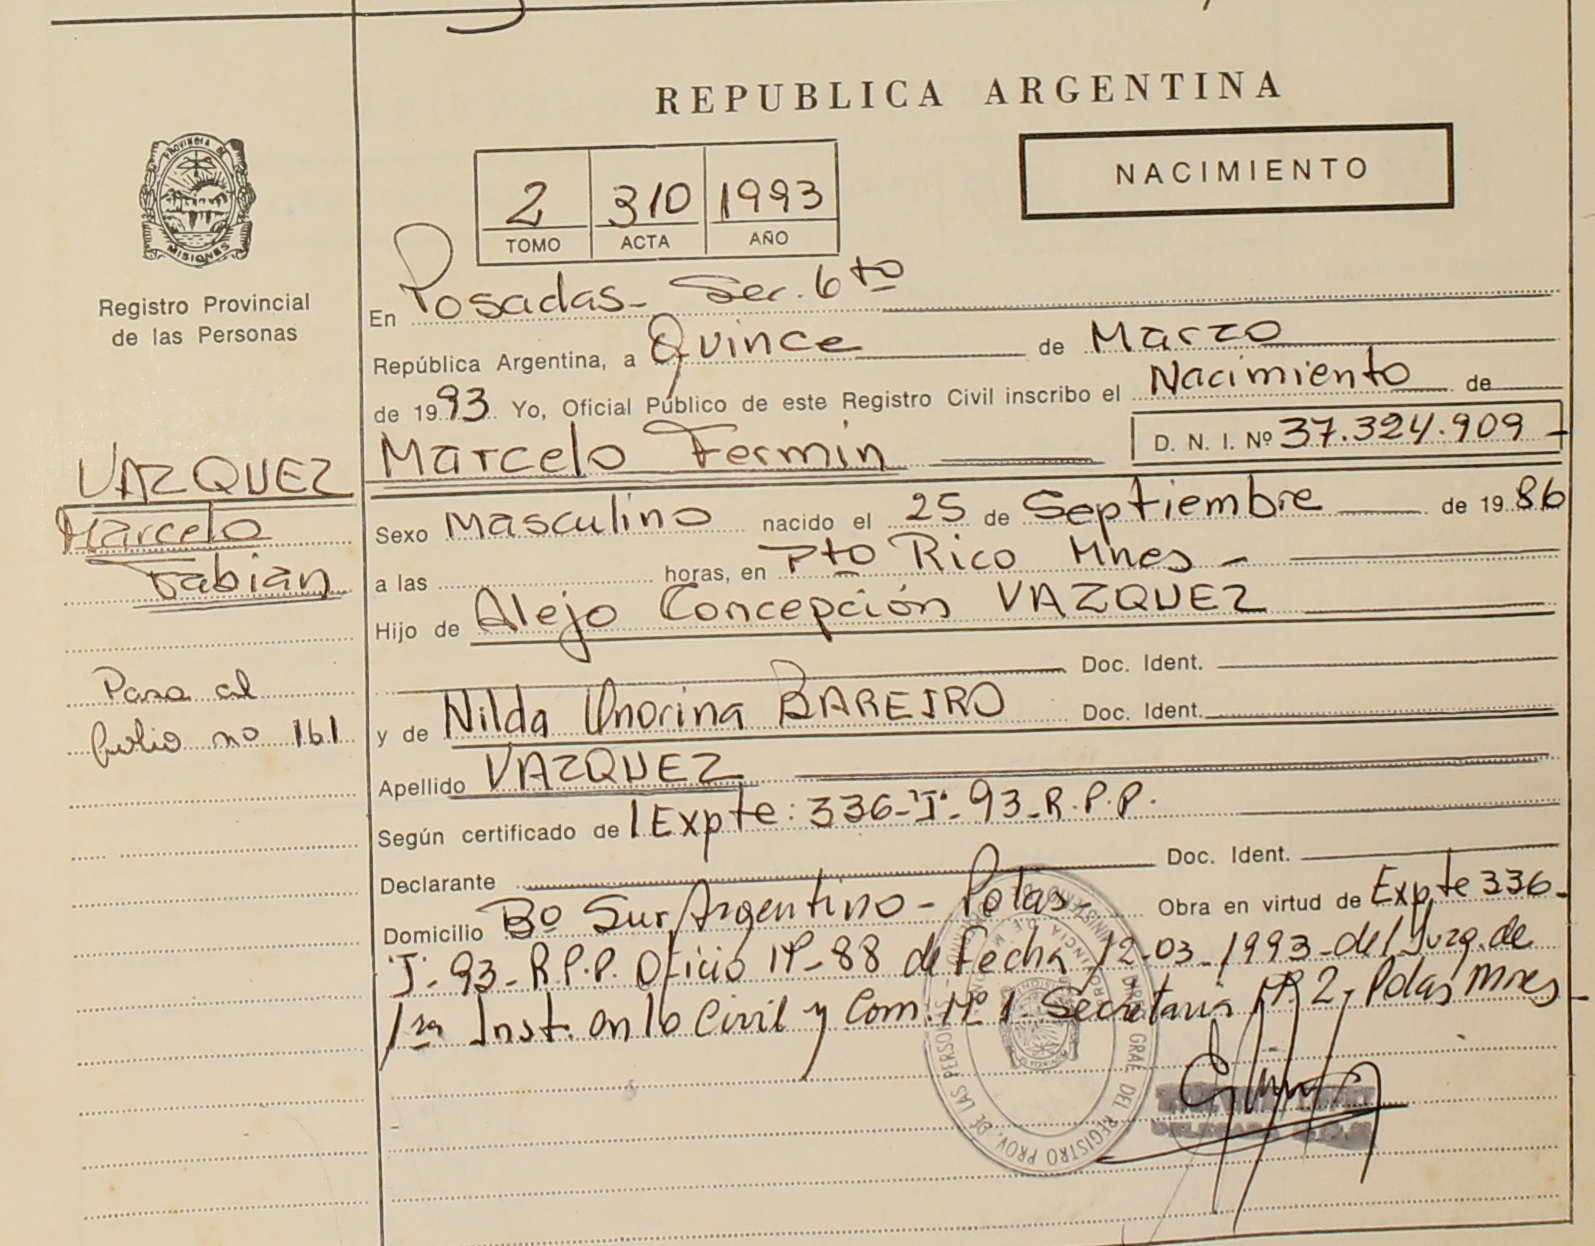 REPUBLICA ARGENTINA
NACIMIENTO
2 310 1993
TOMO ACTA AÑO
PROVINCIA DE
MISIONES
Registro Provincial
de las Personas
En Posadas - Sec. 6to
República Argentina, a Quince de Marzo
de 1993 Yo, Oficial Público de este Registro Civil inscribo el Nacimiento de
Marcelo Fermin D. N. I. Nº 37.324.909
VAZQUEZ
Marcelo
Fabian
Sexo Masculino nacido el 25 de Septiembre de 1986
a las horas, en Pto Rico Mnes -
Hijo de Alejo Concepción VAZQUEZ
Doc. Ident.
Pasa al
folio no 161
y de Nilda Onorina BAREIRO Doc. Ident.
Apellido VAZQUEZ
Según certificado de Expte: 336-"J"- 93-R.P.P.
Declarante Doc. Ident.
Domicilio Bº Sur Argentino - Pdas - Obra en virtud de Expte 336-
"J"- 93-R.P.P. Oficio Nº-88 de fecha 12-03-1993-del Juzg. de
1ra Inst. en lo Civil y Com. Nº 1. Secretaria Nº 2, Pdas Mnes -
GRAL DEL REGISTRO PROV. DE LAS PERSONAS